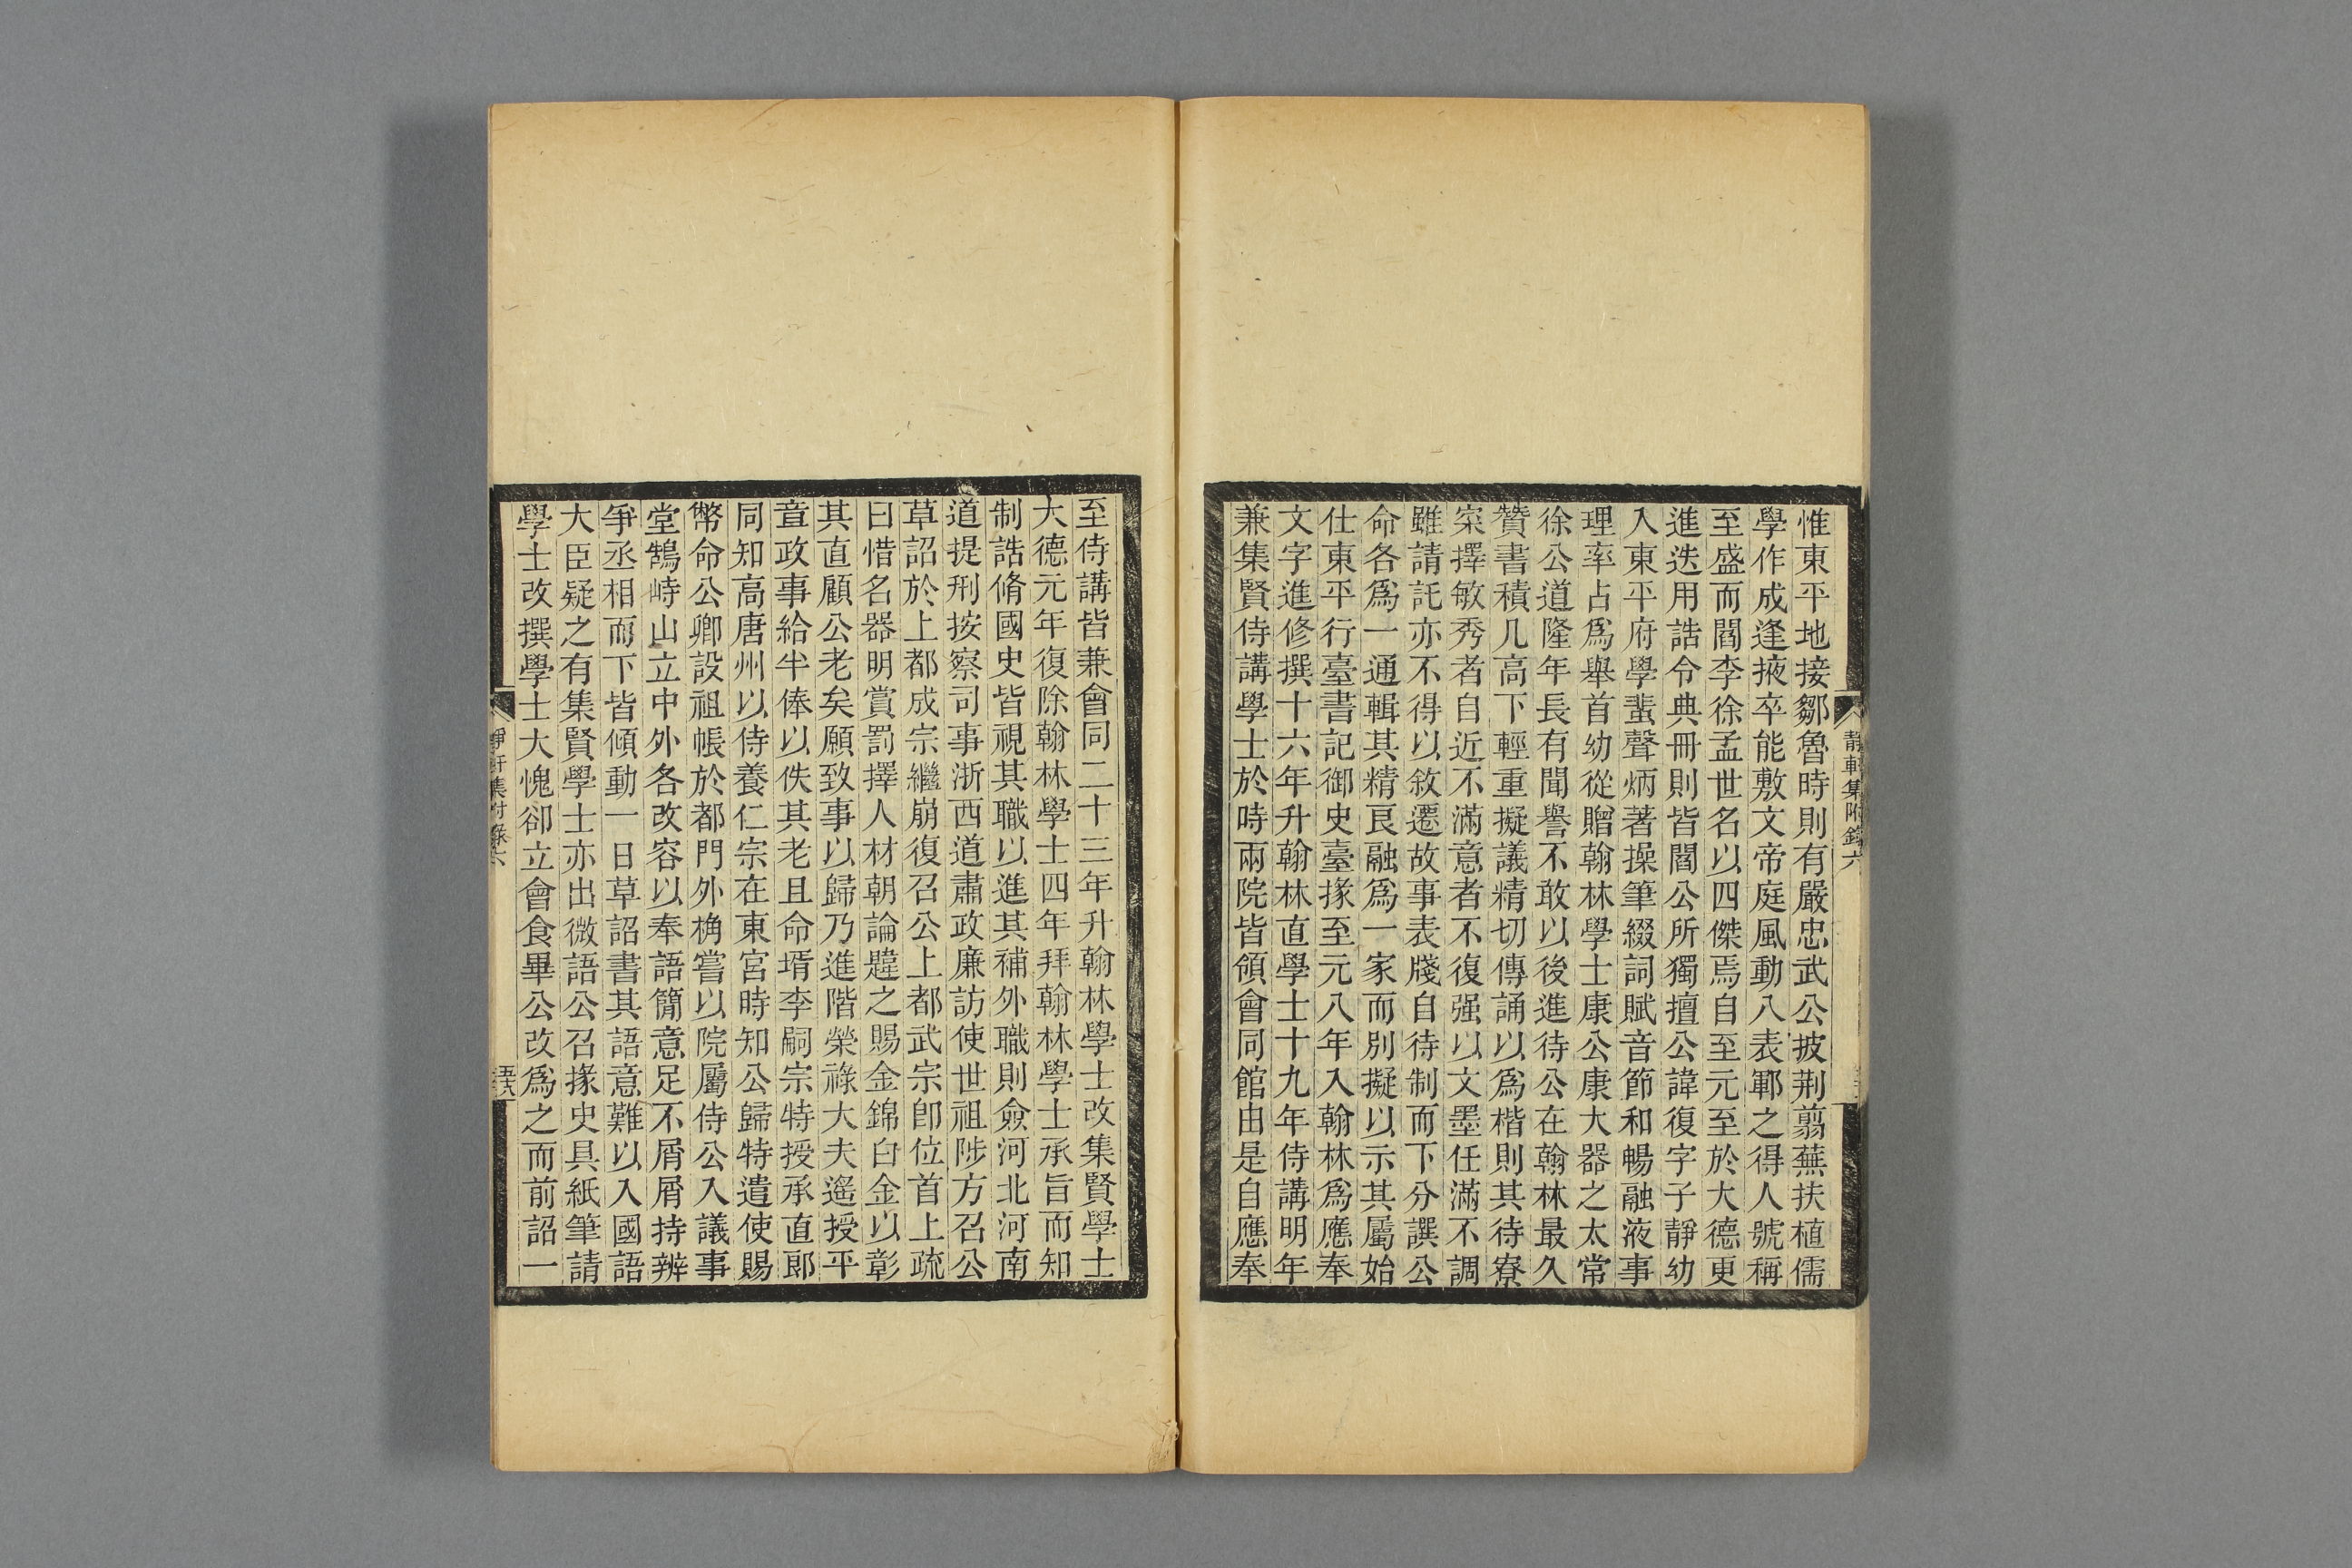 靜軒集附錄六
惟東平地接鄒魯時則有嚴忠武公披荆翦蕪扶植儒
學作成逢掖卒能敷文帝庭風動八表鄆之得人號稱
至盛而閻李徐孟世名以四傑焉自至元至於大德更
進迭用誥令典冊則皆閻公所獨擅公諱復字子靜幼
入東平府學蜚聲炳著操筆綴詞賦音節和暢融液事
理率占爲舉首幼從贈翰林學士康公康大器之太常
徐公道隆年長有聞譽不敢以後進待公在翰林最久
贊書積几高下輕重擬議精切傳誦以爲楷則其待寮
寀擇敏秀者自近不滿意者不復强以文墨任滿不調
雖請託亦不得以敘遷故事表牋自待制而下分譔公
命各爲一通輯其精良融爲一家而別擬以示其屬始
仕東平行臺書記御史臺掾至元八年入翰林爲應奉
文字進修撰十六年升翰林直學士十九年侍講明年
兼集賢侍講學士於時兩院皆領會同館由是自應奉
至侍講皆兼會同二十三年升翰林學士改集賢學士
大德元年復除翰林學士四年拜翰林學士承旨而知
制誥脩國史皆視其職以進其補外職則僉河北河南
道提刑按察司事浙西道肅政廉訪使世祖陟方召公
草詔於上都成宗繼崩復召公上都武宗卽位首上疏
曰惜名器明賞罰擇人材朝論韙之賜金錦白金以彰
其直顧公老矣願致事以歸乃進階榮祿大夫遙授平
章政事給半俸以佚其老且命壻李嗣宗特授承直郎
同知高唐州以侍養仁宗在東宮時知公歸特遣使賜
幣命公卿設祖帳於都門外桷嘗以院屬侍公入議事
堂鵠峙山立中外各改容以奉語簡意足不屑屑持辨
爭丞相而下皆傾動一日草詔書其語意難以入國語
大臣疑之有集賢學士亦出微語公召掾史具紙筆請
學士改撰學士大愧卻立會食畢公改爲之而前詔一
靜軒集附錄六